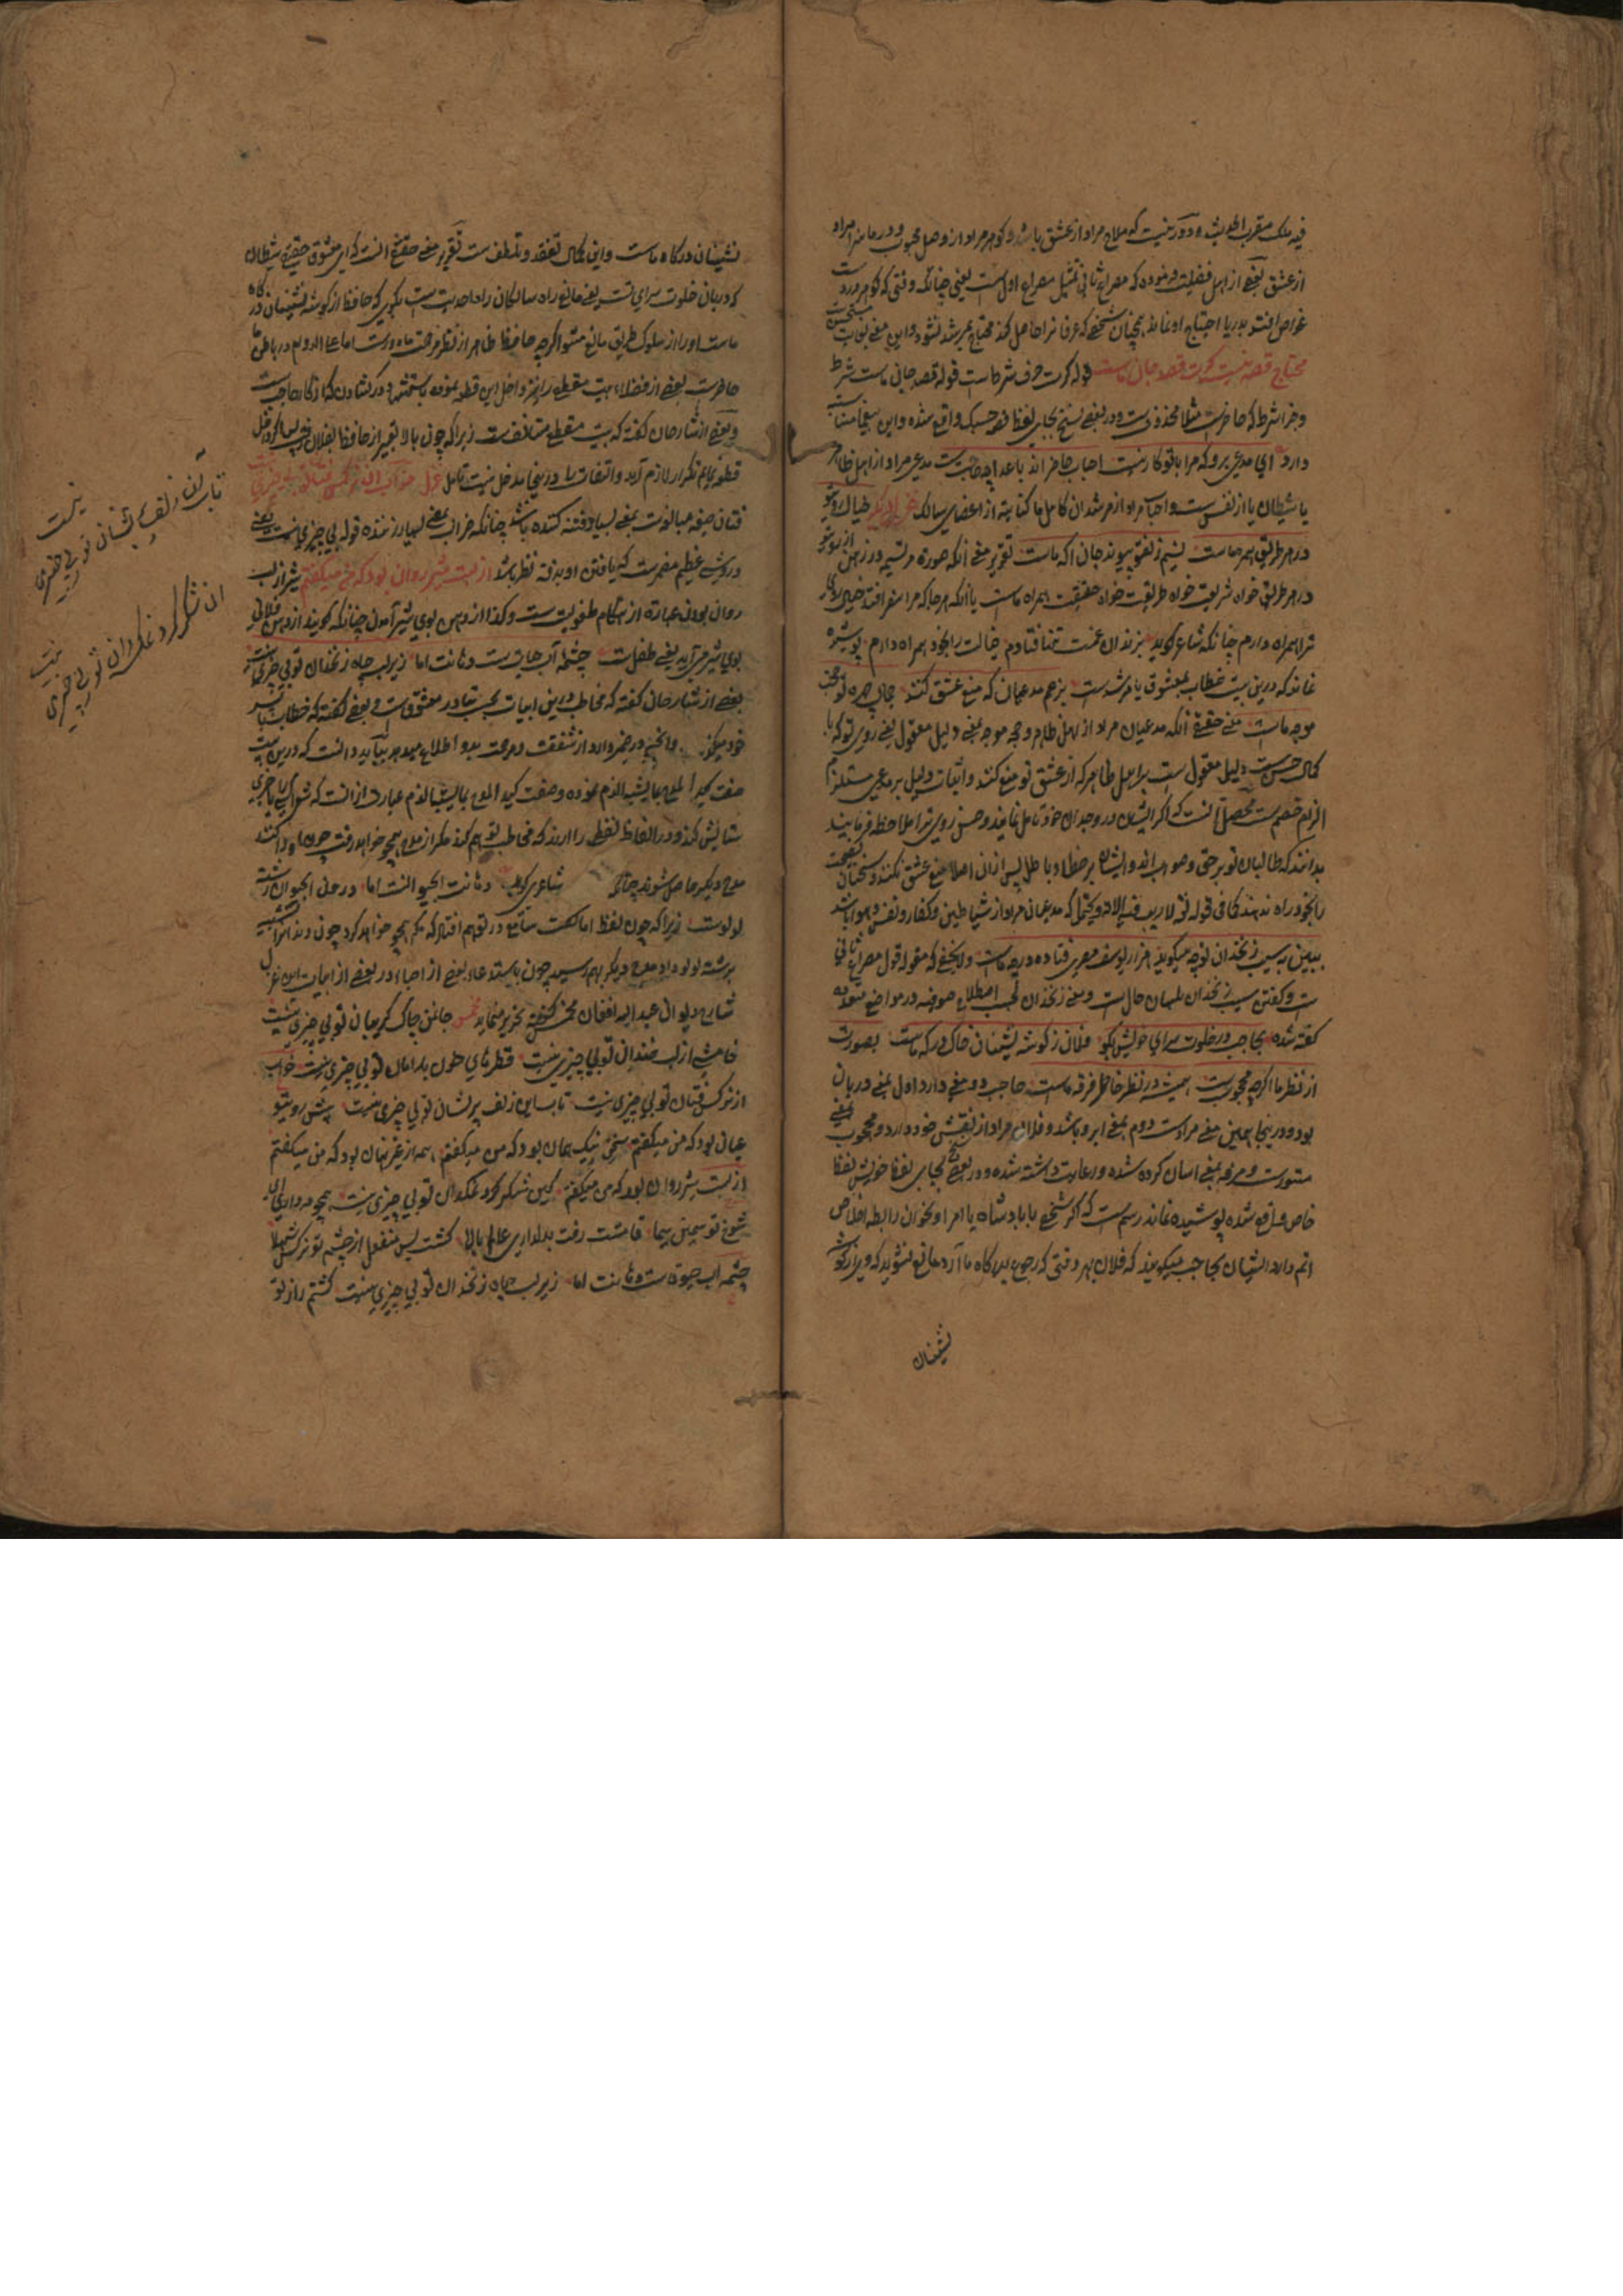 فیه ملک مقرب الحدیث و دور نیست که ملاح مراد از عشق باشد و کوهر مراد از وصل محبوب و در ما نه مراد
از عشق بعضی از اهل فضیلت فرموده که مصراع ثانی تمثیل مصراع اول ست یعنی چنانکه وقتی که کوهر و ر دست
غواص افتد بدریا احتیاج او نماند همچنان شخصی که عرفان ترا حاصل کند محتاج بمرشد نشود و این معنی بغایت مستحسن
محتاج قصه نیست کرت قصد جان ماست قوله کرت حرف شرط است قوله قصد جان ماست شرط
و جزا شرط که حاضر ست مثلا محذوف ست و در بعضی نسخ بجای لفظ قصد حسبک واقع شده و این
دارد ای مدعی برو که مرا با تو کار نیست احباب حاضر اند باعدا چه حاجت ست مدعی مراد از اهل ظاهر
یا شیطان یا از نفس ست و احباب مراد از مرشدان کامل ما کنایته از اعضای سالک غزل دیکر خیال روی تو
در هر طریق همره ماست نسیم زلف تو پیوند جان اکه ماست تقریر معنی آنکه صورة مرتسم در ذهن از روی تو
در هر طریق خواه شریعت خواه طریقت خواه حقیقت همراه ماست یا آنکه هر جا که مرا سفر افتد خیال روی
ترا همراه دارم چنانکه شاعر کوید بزندان غمت تنها فتادم خیالت را بخود همراه دارم پوشیده
نماند که درین بیت خطاب بمعشوق یا مرشد ست برغم مدعیان که منع عشق کنند جمال چهره تو حجت
موجه ماست معنی حقیقی آنکه مدعیان مراد از اهل ظاهر و حجه موجه بمعنی دلیل معقول یعنی روی تو که با
کمال حسن ست دلیل معقول ست بر اهل ظاهر که از عشق تو منع کنند و اثبات دلیل بر مدعی مستلزم
الزام خصم ست محصل آنست که اکر ایشان در وجدان خود تامل نمایند و حسن روی ترا ملاحظه فرمایند
بدانند که طالبان تو بر حق و صواب اند و ایشان بر خطا و باطل پس ازان اصلا منع عشق نکنند و سخنان نصیحت
را بخود راه ندهند کما فی قوله تع لا ریب فیه الا و یحتمل که مدعیان مراد از شیاطین و کفار و نفس و هوا باشد
ببین که سیب زنخدان تو چه میکوید هزار یوسف مصری فتاده در چه ماست ولا یخفی که مقوله قول مصراع ثانی
ست و کفتن سیب زنخدان بلسان حال ست و معنی زنخدان بحسب اصطلاح صوفیه در مواضع متعدده
کفته شده بحاجب در خلوت سرای خویش بکو فلان ز کوشه نشینان خاک درکه ماست بصورت
از نظر ما اکرچه محجوب ست همیشه در نظر خاطر مرفه ماست حاجب دو معنی دارد اول بمعنی دربان
بود و درینجا همین معنی مراد ست دوم بمعنی ابرو باشد و فلان مراد از نفس خود دارد و محجوب بمعنی
مستورست و مرفه بمعنی اسان کرده شده و رعایت داشته شده و در بعضی نسخ بجای لفظ خویش لفظ
خاص واقع شده پوشیده نماند رسم ست که اکر شخصی با پادشاه یا امرا و بخوان رابطه اخلاص
اتم دارد ایشان بحاجب میکویند که فلان بهر وقتی که رجوع بدرکاه ما آرد مانع نشوید که وی از کوشه
نشینان
نشینان درکاه ماست و این کمال تفقد و تلطف ست تقریر معنی حقیقی آنست که ای معشوق حقیقی شیطان
که دربان خلوت سرای تست یعنی مانع راه سالکان راه احدیت ست بکوی که حافظ از کوشه نشینان درکاه
ماست او را از سلوک طریق مانع مشو اکرچه حافظ ظاهر از نظر مرحمت ما دور ست اما علی الدوام در باطن ما
حاضر ست بعضی از فضلاء بیت مقطع را نیز داخل این قطعه نموده
و بعضی از شارحان کفته که بیت مقطع مستانفست زیرا که چون بالا تعبیر از حافظ بفلان
قطعه نمایم تکرار لازم آید و التفات را درینجا مدخل نیست تامل غزل خواب آن نرکس فتان تو بی چیزی نیست
فتان صیغه مبالغست بمعنی بسیار فتنه کننده باشد چنانکه ضراب بمعنی بسیار زننده قوله بی چیزی نیست یعنی
در وی شی عظیم مضمرست که یافتن او بدقت نظر باشد از لبت شیر روان بود که من میکفتم شیر از لب
روان بودن عبارة از هنکام طفولیت ست و کذا از دهن بوی شیر آمدن چنانکه کویند از دهن فلانی
بوی شیر می آید یعنی طفل ست چشمه آب حیات ست دهانت اما زیر لب چاه زنخدان تو بی چیزی نیست
بعضی از شارحان کفته که مخاطب درین ابیات بحسب تبادر معشوق ست و بعضی کفته که خطاب
خود میکند و آنچه در ضمیر دارد از شفقت و مرحمت بدو اطلاع میدهد بباید دانست که درین بیت
صنعت تاکید المدح بما یشبه الذم نموده و صنعت تاکید المدح بما یشبه الذم عبارت از انست که شخصی را بچیزی
ستایش کند و در الفاظ لفظی را ارند که مخاطب توهم کند مکر از مدح بهجو خواهد رفت چون
مدح دیکر حاصل شود چنانکه شاعر کوید دهانت آبحیوانست اما در ان آبحیوان رشته
لولوست زیرا که چون لفظ اما کفت سامع در توهم افتاد که مکر هجو خواهد کرد چون دندانرا تشبیه
برشته لولو داد مدح دیکر بهم رسید چون باستدعاء بعضی از احباء در بعضی از ابیات این غزل
شارح دیوان عبد الله افغان مخمس کفته تحریر مینماید مخمس جانمن چاک کریبان تو بی چیزی نیست
خامشی از لب خندان تو بی چیزی نیست قطرهای خون بدامان تو بی چیزی نیست خواب
از نرکس فتان تو بی چیزی نیست تاب این زلف پریشان تو بی چیزی نیست پیش رویتو
عیان بود که من میکفتم سخن نیک همان بود که من میکفتم همه از غیر نهان بود که من میکفتم
از لبت شیر روان بود که من میکفتم کین شکر کرد نمکدان تو بی چیزی نیست همچو مه داری ای
شوخ تو سیمین سیما قامتت رفت بدلداری عالم بالا کشت پس منفعل از چشم تو نرکس شهلا
چشمه آب حیوة ست دهانت اما زیر لب چاه زنخدان تو بی چیزی نیست کشتم راز تو
تاب آن زلف پریشان تو بی چیزی نیست
این شکر کرد نمکدان تو بی چیزی نیست